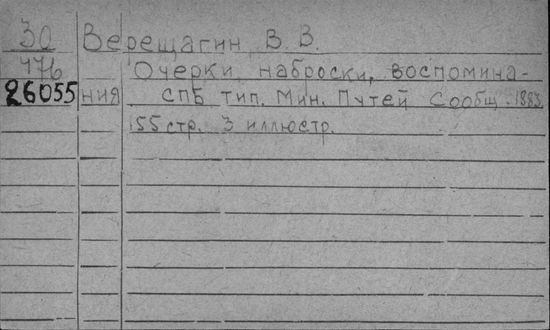 30 Верещагин В. В.
776 Очерки, наброски, воспомина-
26055 ния СПБ тип. Мин. Путей Сообщ. 1883.
155 стр. 3 иллюстр.